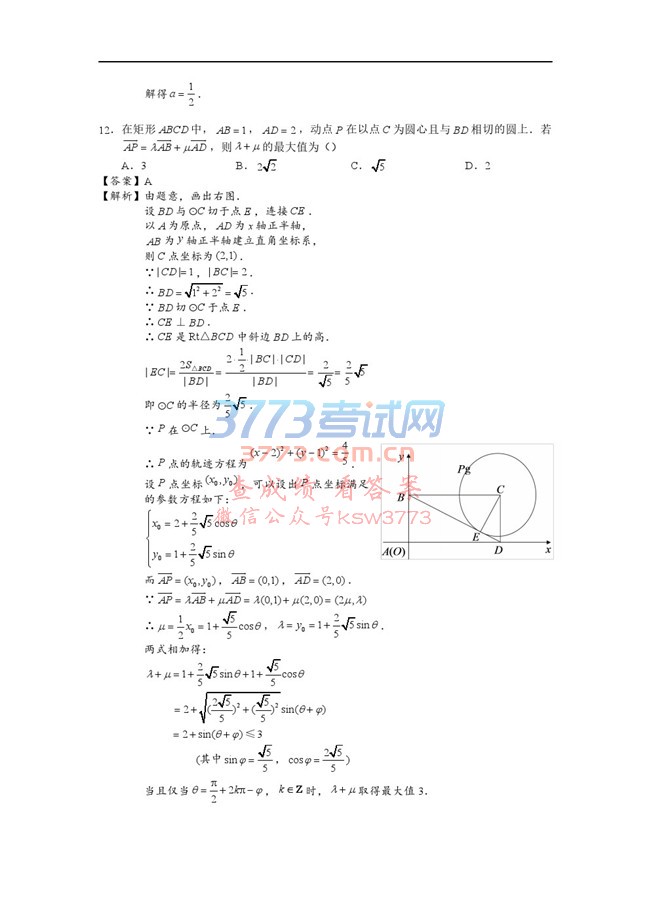 解得 a = 1/2 .
12. 在矩形 ABCD 中， AB = 1 ， AD = 2 ，动点 P 在以点 C 为圆心且与 BD 相切的圆上．若
AP = λAB + μAD ，则 λ + μ 的最大值为（）
A．3 B．2√2 C．√5 D．2
【答案】A
【解析】由题意，画出右图．
设 BD 与 ⊙C 切于点 E ，连接 CE ．
以 A 为原点， AD 为 x 轴正半轴，
AB 为 y 轴正半轴建立直角坐标系，
则 C 点坐标为 (2,1) ．
∵ |CD| = 1 ， |BC| = 2 ．
∴ BD = √(1² + 2²) = √5 ．
∵ BD 切 ⊙C 于点 E ．
∴ CE ⊥ BD ．
∴ CE 是 Rt△BCD 中斜边 BD 上的高．
|EC| = 2S△BCD / |BD| = 2·1/2·|BC|·|CD| / |BD| = 2/√5 = 2/5 √5
即 ⊙C 的半径为 2/5 √5 ．
3773考试网
∵ P 在 ⊙C 上．
∴ P 点的轨迹方程为 (x−2)² + (y−1)² = 4/5 ．
设 P 点坐标 (x₀, y₀) ，可以设出 P 点坐标满足
查成绩 看答案
的参数方程如下：
微信公众号ksw3773
x₀ = 2 + 2/5 √5 cosθ
y₀ = 1 + 2/5 √5 sinθ
y
Pg
B
C
E
A(O)
D
x
而 AP = (x₀, y₀) ， AB = (0,1) ， AD = (2,0) ．
∵ AP = λAB + μAD = λ(0,1) + μ(2,0) = (2μ, λ)
∴ μ = 1/2 x₀ = 1 + √5/5 cosθ ， λ = y₀ = 1 + 2/5 √5 sinθ ．
两式相加得：
λ + μ = 1 + 2/5 √5 sinθ + 1 + √5/5 cosθ
= 2 + √((2√5/5)² + (√5/5)²) sin(θ + φ)
= 2 + sin(θ + φ) ≤ 3
(其中 sinφ = √5/5 ， cosφ = 2√5/5 )
当且仅当 θ = π/2 + 2kπ − φ ， k ∈ Z 时， λ + μ 取得最大值 3．